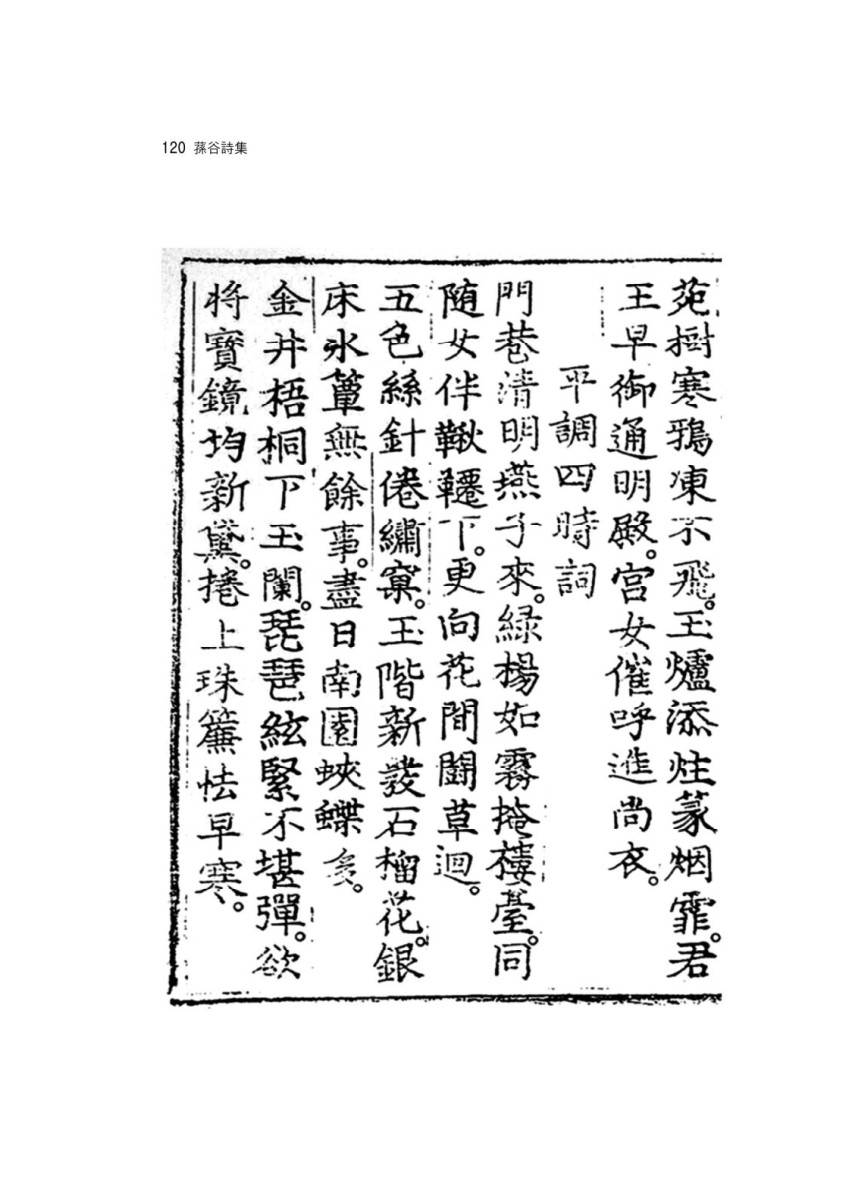 120 蓀谷詩集
苑樹寒鴉凍不飛。玉爐添炷篆烟霏。君
王早御通明殿。宮女催呼進尚衣。
平調四時詞
門巷清明燕子來。綠楊如霧掩樓臺。同
随女伴鞦韆下。更向花間鬪草迴。
五色絲針倦繡窠。玉階新發石榴花。銀
床氷簟無餘事。盡日南園蛺蝶多。
金井梧桐下玉闌。琵琶絃緊不堪彈。欲
将寶鏡均新黛。捲上珠簾怯早寒。